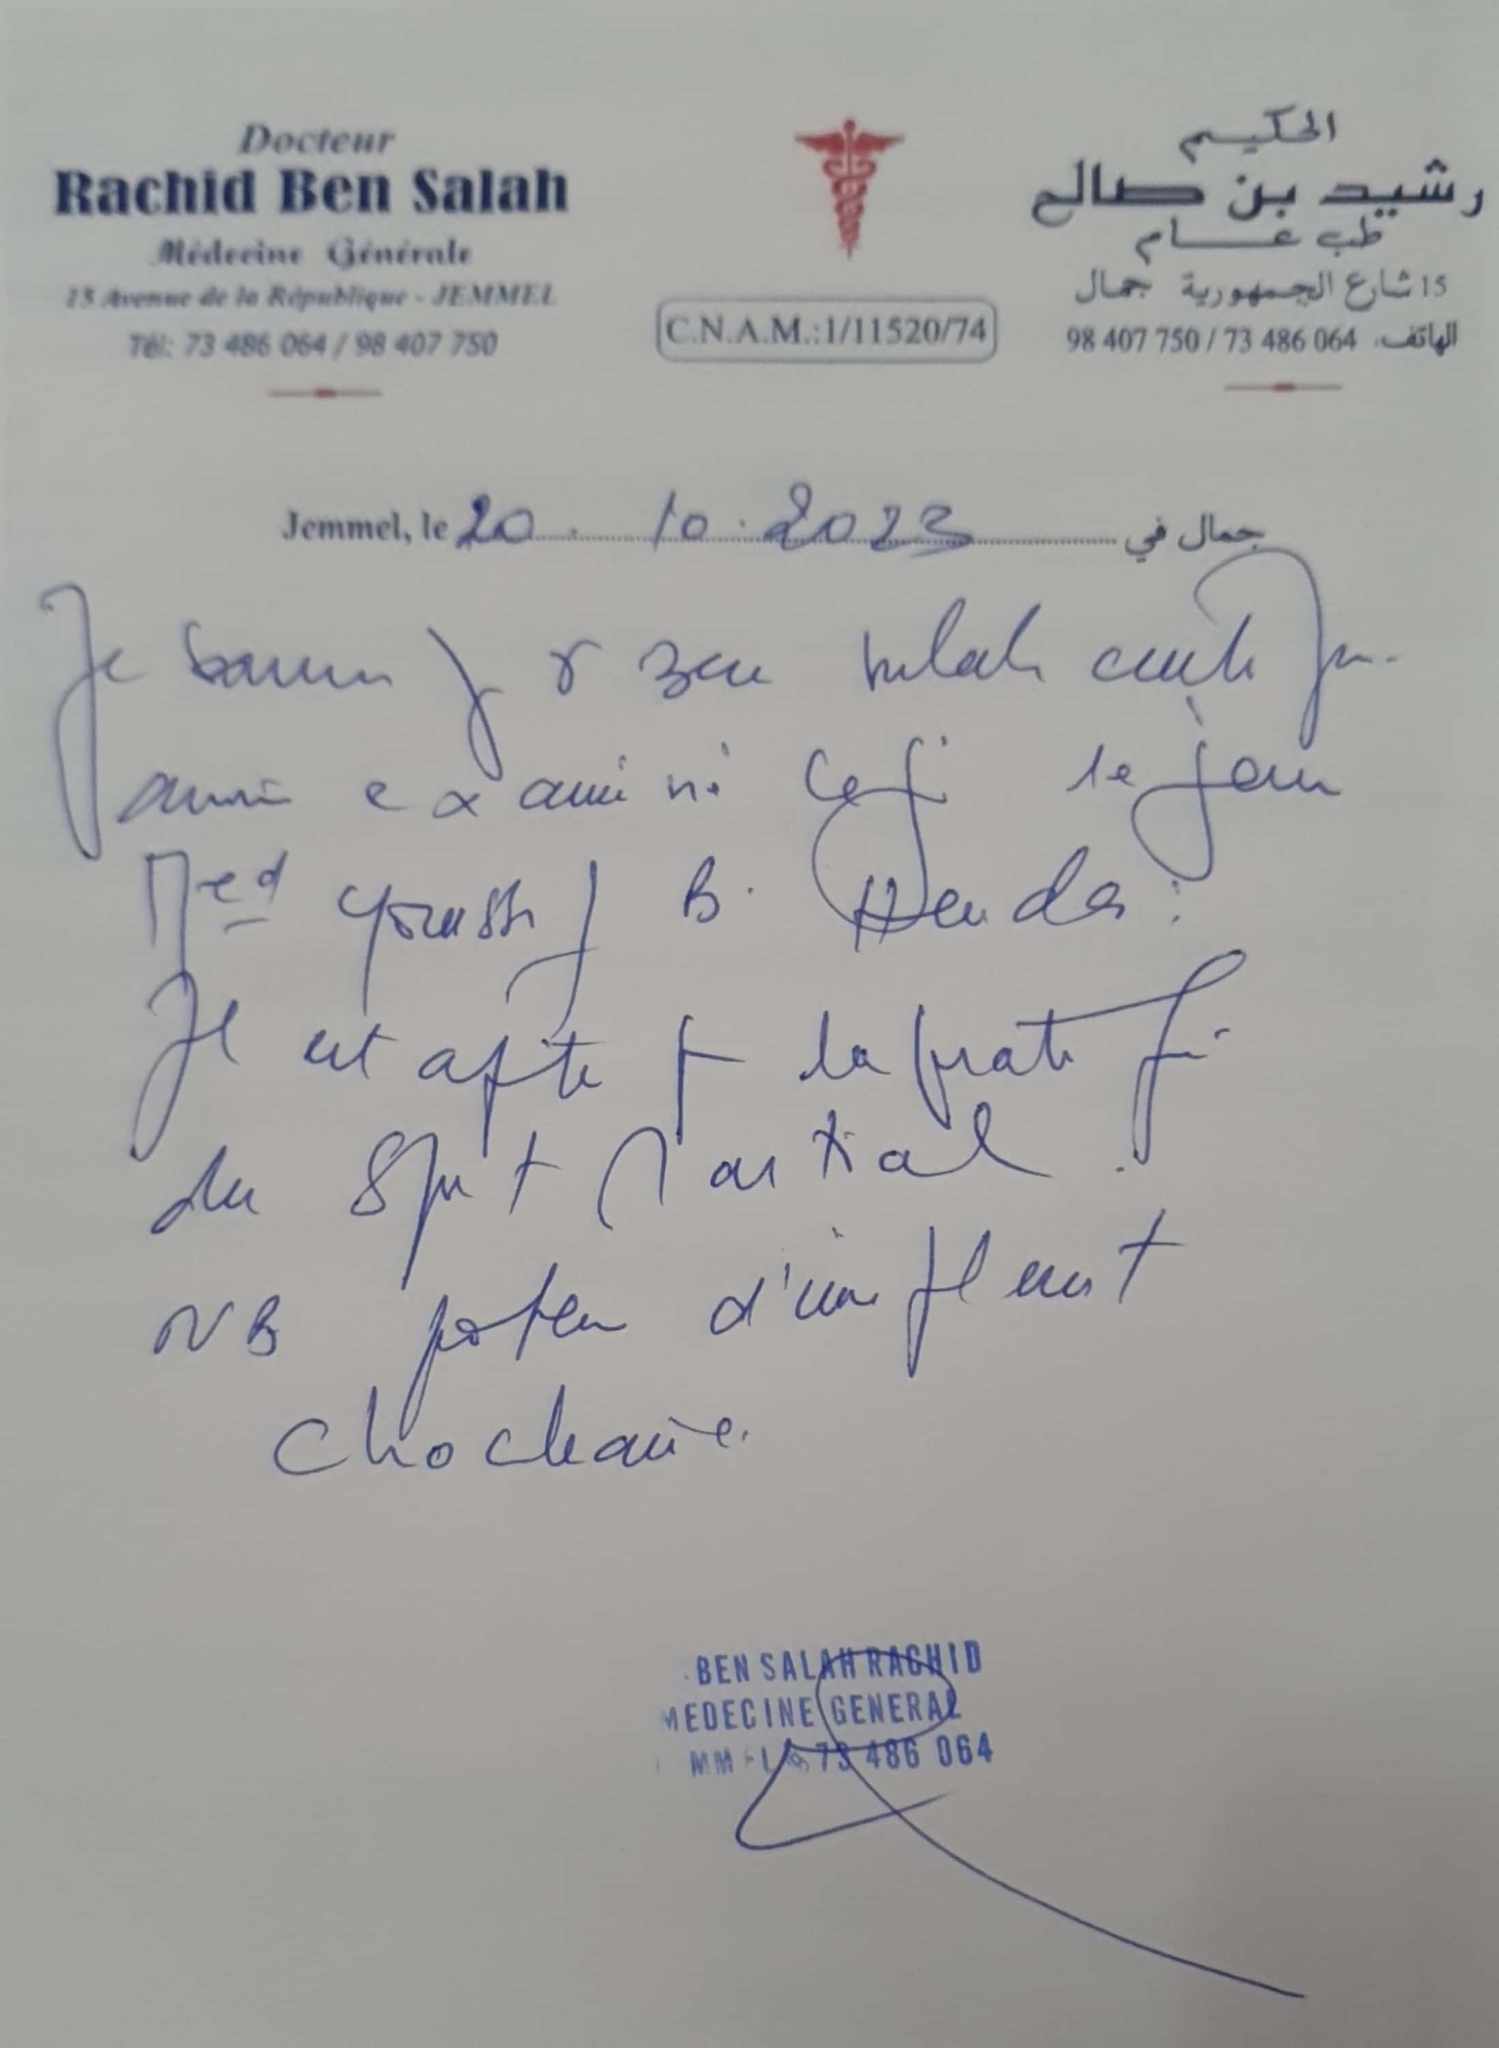 Docteur
Rachid Ben Salah
Médecine Générale
15 Avenue de la République - JEMMEL
Tél: 73 486 064 / 98 407 750
C.N.A.M.:1/11520/74
الحكيم
رشيد بن صالح
طب عام
15 شارع الجمهورية جمال
الهاتف: 98 407 750 / 73 486 064
Jemmel, le 20. 10. 2023 جمال في
Je Dr Ben Salah
examiné ce le jour
Med Youssef B. Henda:
Il est apte la
du Sport Martial.
NB d'un
BEN SALAH RACHID
MEDECINE GENERAL
73 486 064